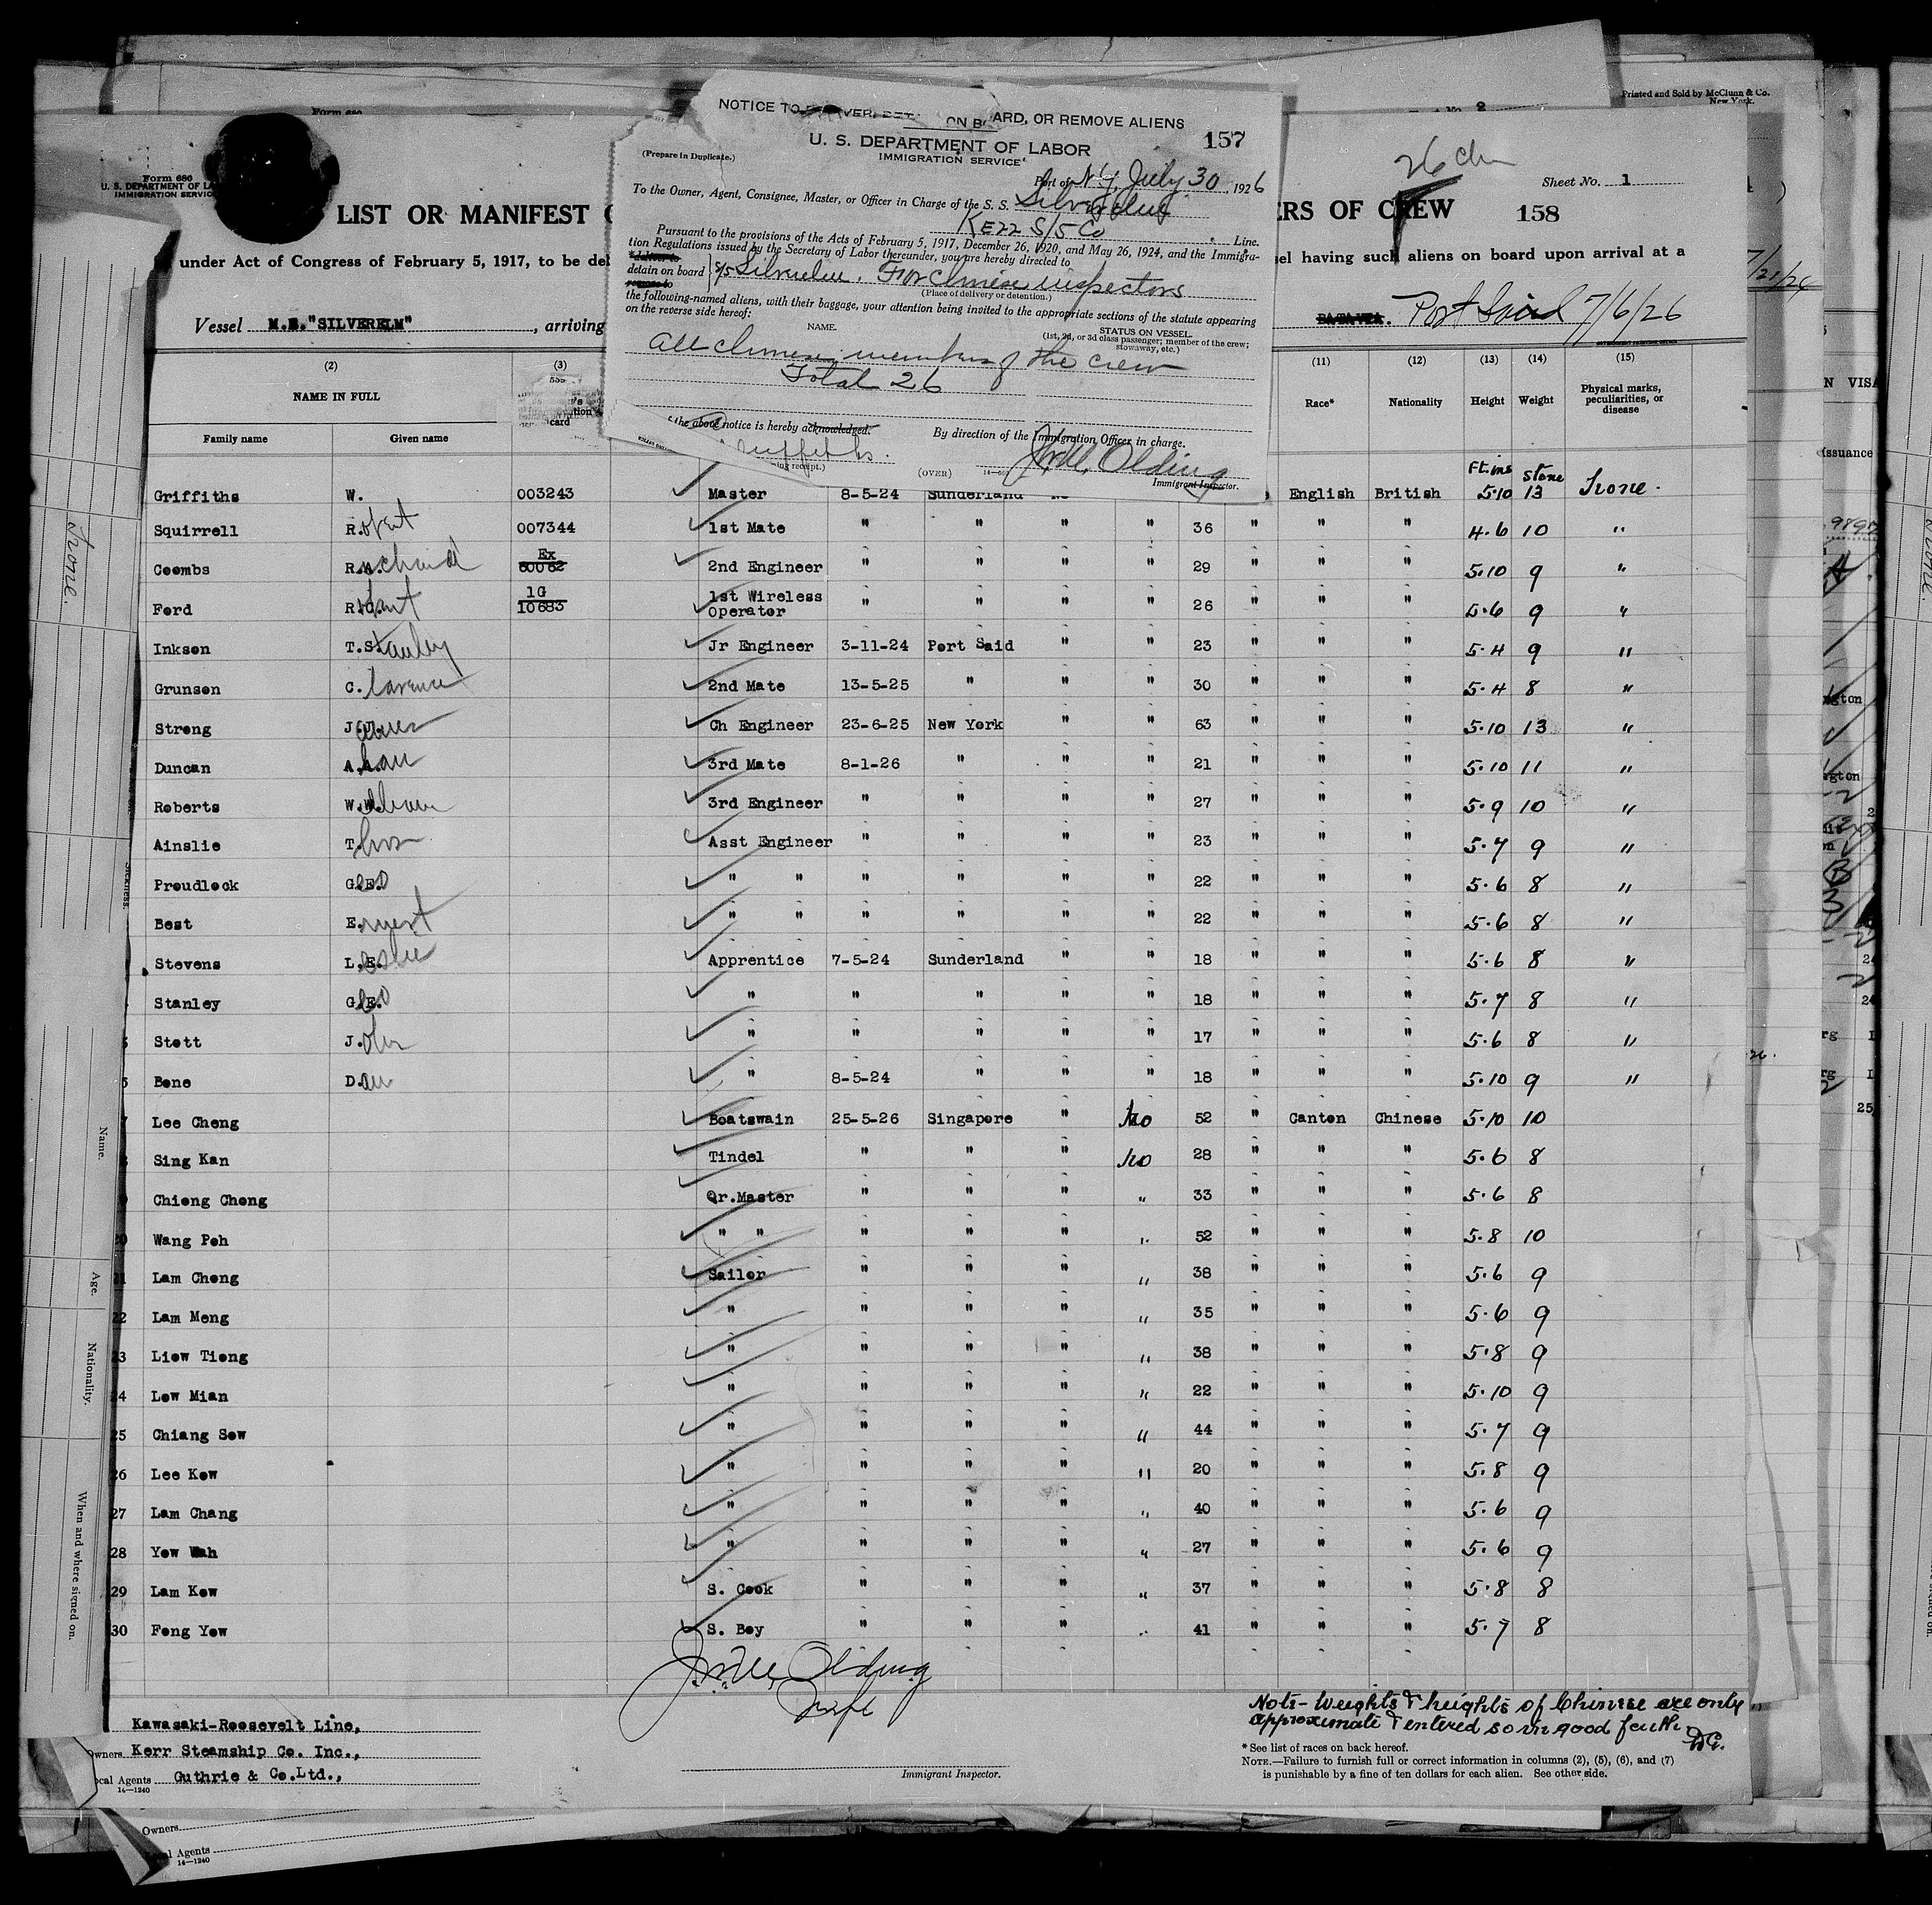 Printed and Sold by McClunn & Co.
New York.
Form 680
NOTICE TO
ON BOARD, OR REMOVE ALIENS
157
U. S. DEPARTMENT OF LABOR
IMMIGRATION SERVICE
(Prepare in Duplicate.)
Port of N.Y. July 30, 1926
To the Owner, Agent, Consignee, Master, or Officer in Charge of the S. S. Silverelm
Line.
Pursuant to the provisions of the Acts of February 5, 1917, December 26, 1920, and May 26, 1924, and the Immigra-
tion Regulations issued by the Secretary of Labor thereunder, you are hereby directed to
deliver to
detain on board S/S Silverelm. For Chinese inspectors
remove to
(Place of delivery or detention.)
the following-named aliens, with their baggage, your attention being invited to the appropriate sections of the statute appearing
on the reverse side hereof:
NAME.
STATUS ON VESSEL.
(1st, 2d, or 3d class passenger; member of the crew;
stowaway, etc.)
All Chinese members of the crew
Total 26
the above notice is hereby acknowledged.
By direction of the Immigration Officer in charge.
Griffiths.
Olding
(OVER)
Immigrant Inspector.
Form 680
U. S. DEPARTMENT OF LA
IMMIGRATION SERVICE
LIST OR MANIFEST
ERS OF CREW
158
26 Ch
Sheet No. 1
under Act of Congress of February 5, 1917, to be del
sel having such aliens on board upon arrival at a
Vessel M.S."SILVERELM", arriving
BATAVIA. Port Said 7/6/26
(2) (3) (11) (12) (13) (14) (15)
NAME IN FULL
Family name Given name
card
Race* Nationality Height Weight Physical marks,
peculiarities, or
disease
Ft. ins Stone
Griffiths W. 003243 Master 8-5-24 Sunderland English British 5.10 13 None.
Squirrell Robert 007344 1st Mate " " " " 36 " " " 4.6 10 "
Coombs Richard Ex 60062 2nd Engineer " " " " 29 " " " 5.10 9 "
Ford R. 1G 10683 1st Wireless Operator " " " " 26 " " " 5.6 9 "
Inkson T. Stanley Jr Engineer 3-11-24 Port Said " " 23 " " " 5.4 9 "
Grunson Clarence 2nd Mate 13-5-25 " " " 30 " " " 5.4 8 "
Strong James Ch Engineer 23-6-25 New York " " 63 " " " 5.10 13 "
Duncan Alan 3rd Mate 8-1-26 " " " 21 " " " 5.10 11 "
Roberts William 3rd Engineer " " " " 27 " " " 5.9 10 "
Ainslie Thos Asst Engineer " " " " 23 " " " 5.7 9 "
Proudlock Geo " " " " " " 22 " " " 5.6 8 "
Best Ernest " " " " " " 22 " " " 5.6 8 "
Stevens Leslie Apprentice 7-5-24 Sunderland " " 18 " " " 5.6 8 "
Stanley Geo " " " " " 18 " " " 5.7 8 "
Stott John " " " " " 17 " " " 5.6 8 "
Bone Dan " 8-5-24 " " " 18 " " " 5.10 9 "
Lee Cheng Boatswain 25-5-26 Singapore " No 52 " Canton Chinese 5.10 10
Sing Kan Tindel " " " No 28 " " " 5.6 8
Chieng Chong Qr.Master " " " " 33 " " " 5.6 8
20 Wang Poh " " " " " " 52 " " " 5.8 10
21 Lam Chong Sailor " " " " 38 " " " 5.6 9
22 Lam Meng " " " " " 35 " " " 5.6 9
23 Liow Tiong " " " " " 38 " " " 5.8 9
24 Low Mian " " " " " 22 " " " 5.10 9
25 Chiang Sow " " " " " 44 " " " 5.7 9
26 Lee Kow " " " " " 20 " " " 5.8 9
27 Lam Chang " " " " " 40 " " " 5.6 9
28 Yow Wah " " " " " 27 " " " 5.6 9
29 Lam Kow S. Cook " " " " 37 " " " 5.8 8
30 Fong Yow S. Boy " " " " 41 " " " 5.7 8
Olding
Note- Weights & heights of Chinese are only
approximate & entered so in good faith.
Kawasaki-Roosevelt Line,
Owners Kerr Steamship Co. Inc.,
Local Agents Guthrie & Co.Ltd.,
14-1240
Immigrant Inspector.
* See list of races on back hereof.
NOTE.—Failure to furnish full or correct information in columns (2), (5), (6), and (7)
is punishable by a fine of ten dollars for each alien. See other side.
Owners
Agents
14-1240
None.
Name.
Age.
Nationality.
When and where signed on.